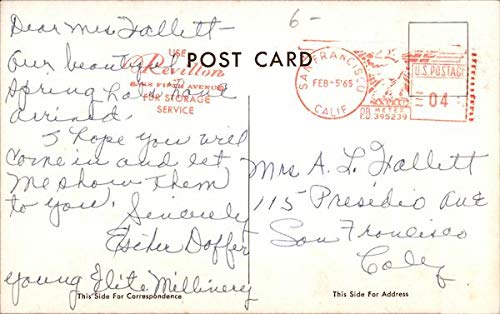 Dear Mrs Hallett-
6-
Our beautiful
spring hats have
arrived.
I hope you will
come in and let
me show them
to you.
Sincerely
Esther Doffer
young Elite Millinery
USE
Revillon
FIFTH AVENUE
FOR STORAGE
SERVICE
POST CARD
SAN FRANCISCO
FEB-5'65
CALIF
U.S. POSTAGE
04
P.B. METER
395239
Mrs A. L. Hallett
115 Presidio Ave
San Francisco
Calif
This Side For Correspondence
This Side For Address